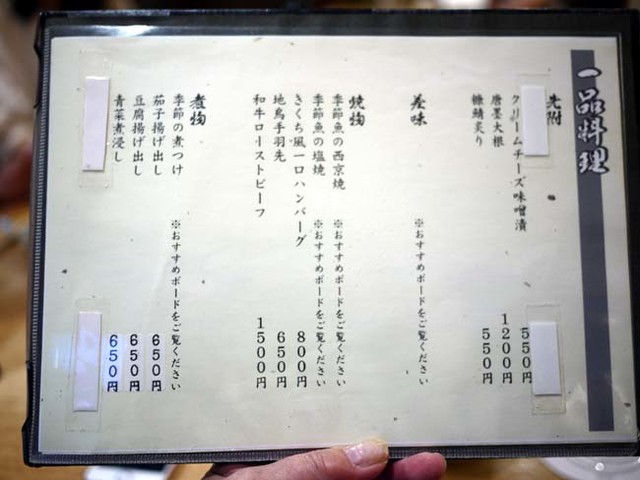 一品料理
先附
クリームチーズ味噌漬 550円
唐墨大根 1200円
鯖炙り 550円
※おすすめボードをご覧ください
焼物
季節魚の西京焼 ※おすすめボードをご覧ください
季節魚の塩焼 ※おすすめボードをご覧ください
きくち風一口ハンバーグ 800円
地鳥手羽先 650円
和牛ローストビーフ 1500円
煮物
季節の煮つけ ※おすすめボードをご覧ください
茄子揚げ出し 650円
豆腐揚げ出し 650円
青菜煮浸し 650円